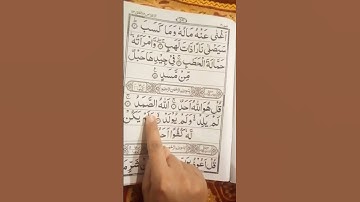 اَغْنٰى عَنْهُ مَالُهٗ وَمَا كَسَبَ
سَيَصْلٰى نَارًا ذَاتَ لَهَبٍ وَّامْرَاَتُهٗ
حَمَّالَةَ الْحَطَبِ فِيْ جِيْدِهَا حَبْلٌ
مِّنْ مَّسَدٍ
قُلْ هُوَ اللّٰهُ اَحَدٌ اَللّٰهُ الصَّمَدُ
لَمْ يَلِدْ وَلَمْ يُوْلَدْ يَكُنْ
لَّهٗ كُفُوًا
قُلْ اَعُوْذُ